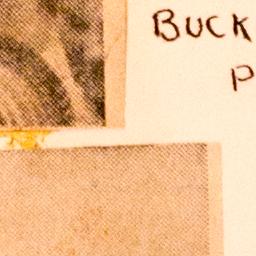 BUCK
P